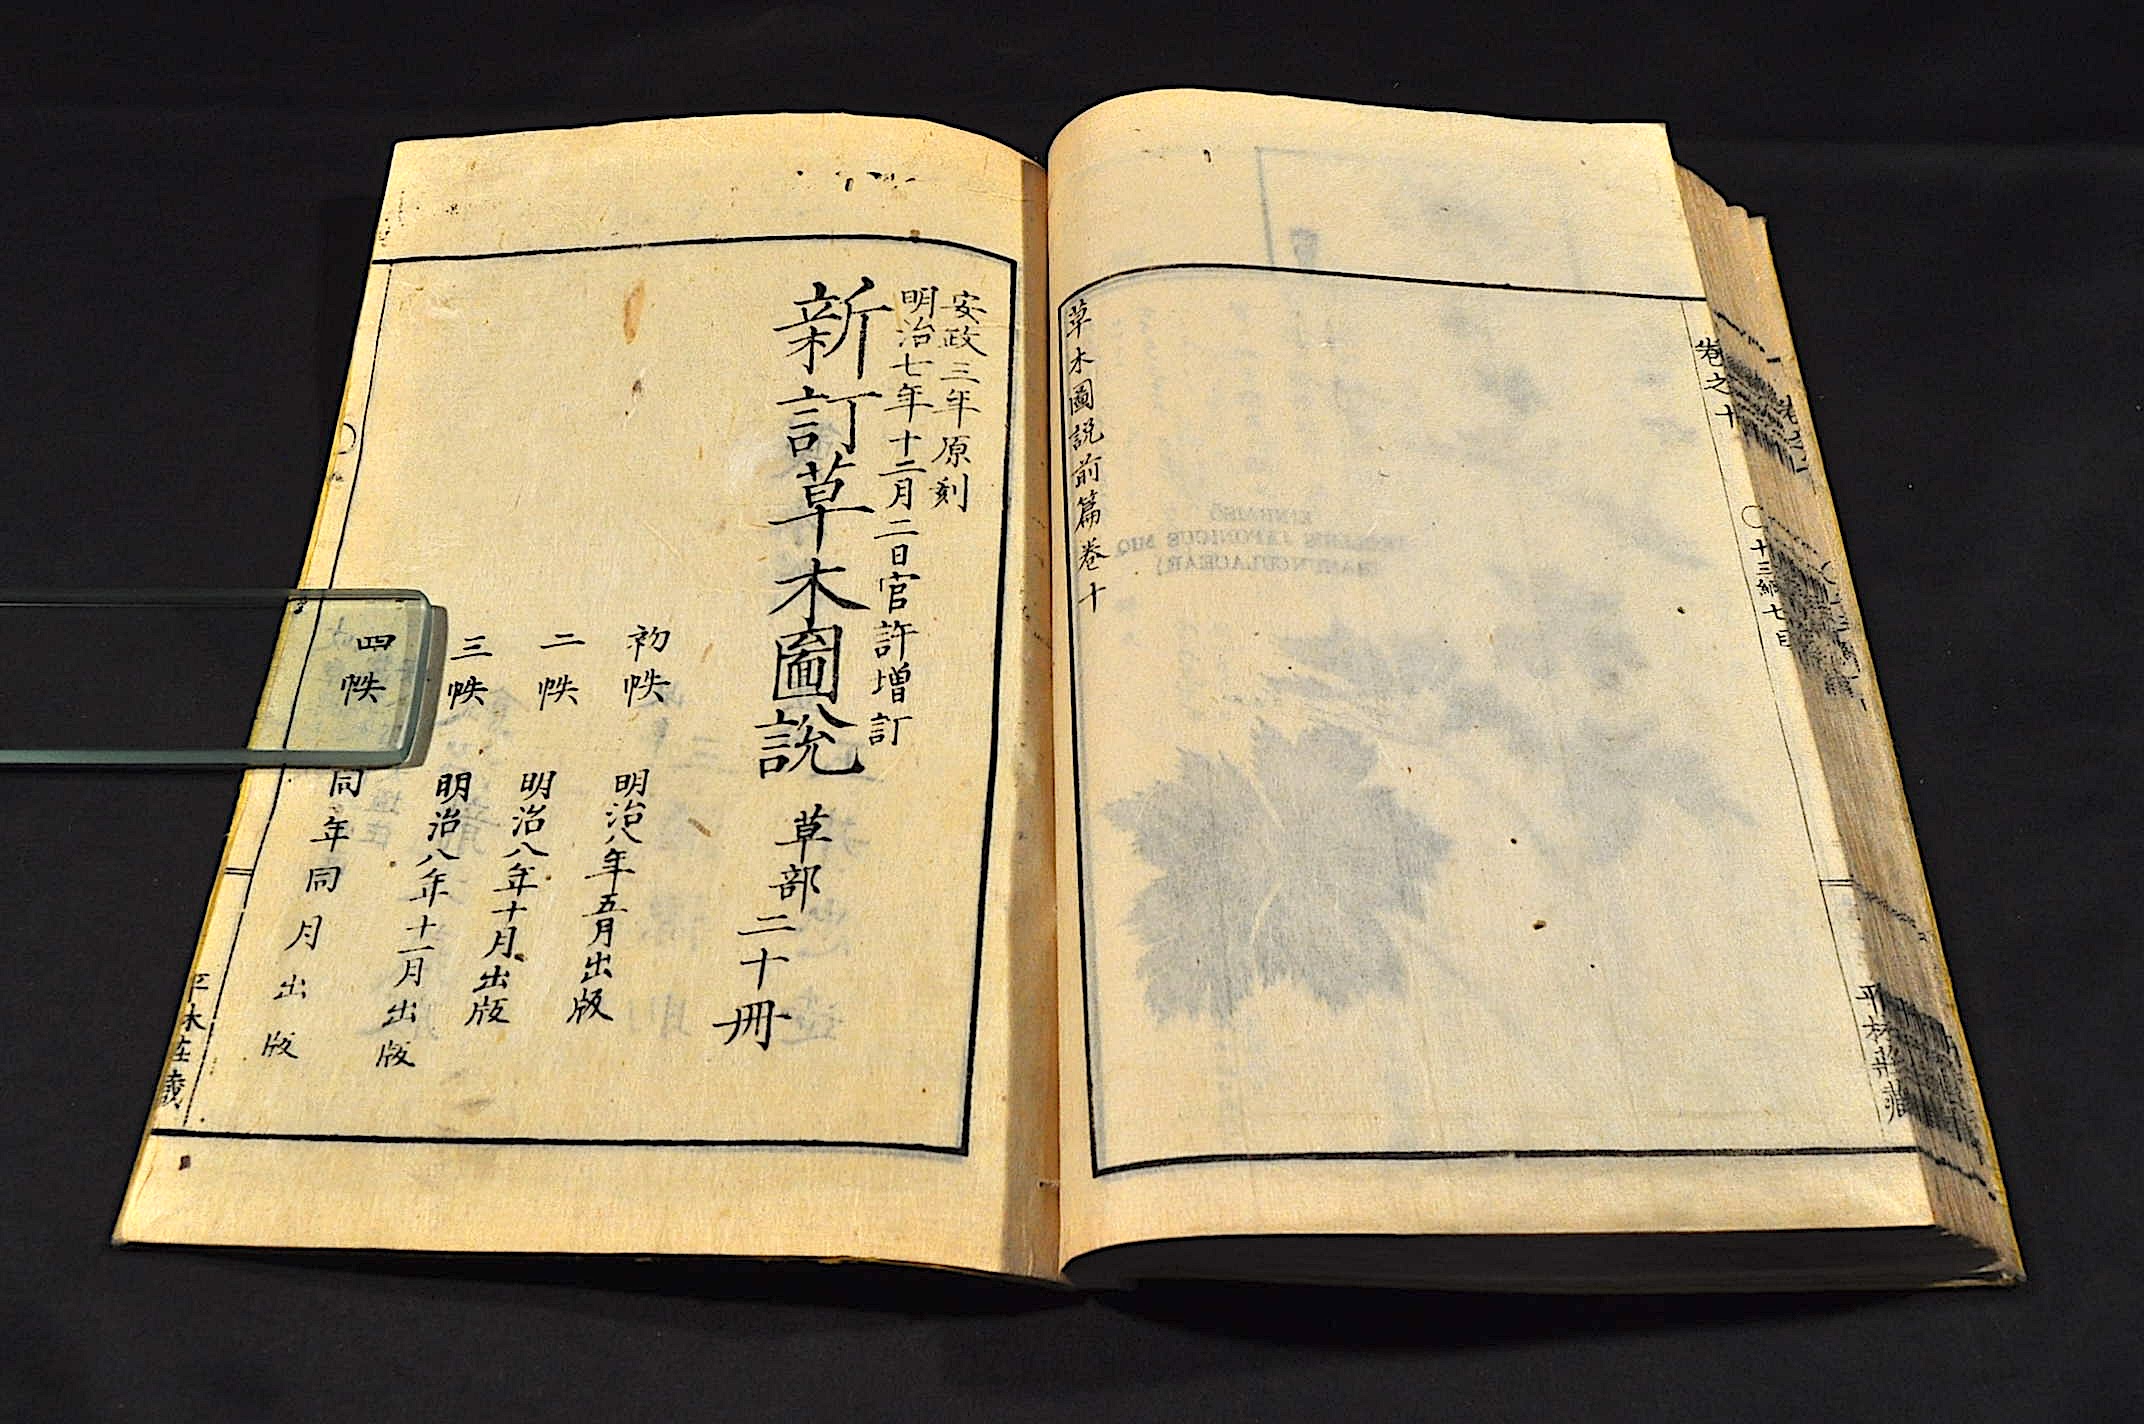 巻之十
〇十三綱七目
平林荘蔵
草木圖説前篇巻十
安政三年原刻
明治七年十二月二日官許増訂
新訂草木圖說 草部二十冊
初帙 明治八年五月出版
二帙 明治八年十月出版
三帙 明治八年十一月出版
四帙 同年同月出版
平林荘蔵